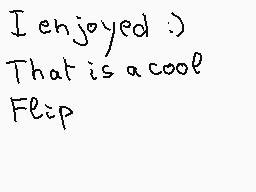 I enjoyed :)
That is a cool
Flip